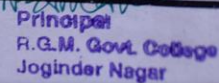 Principal
R.G.M. Govt. College
Joginder Nagar